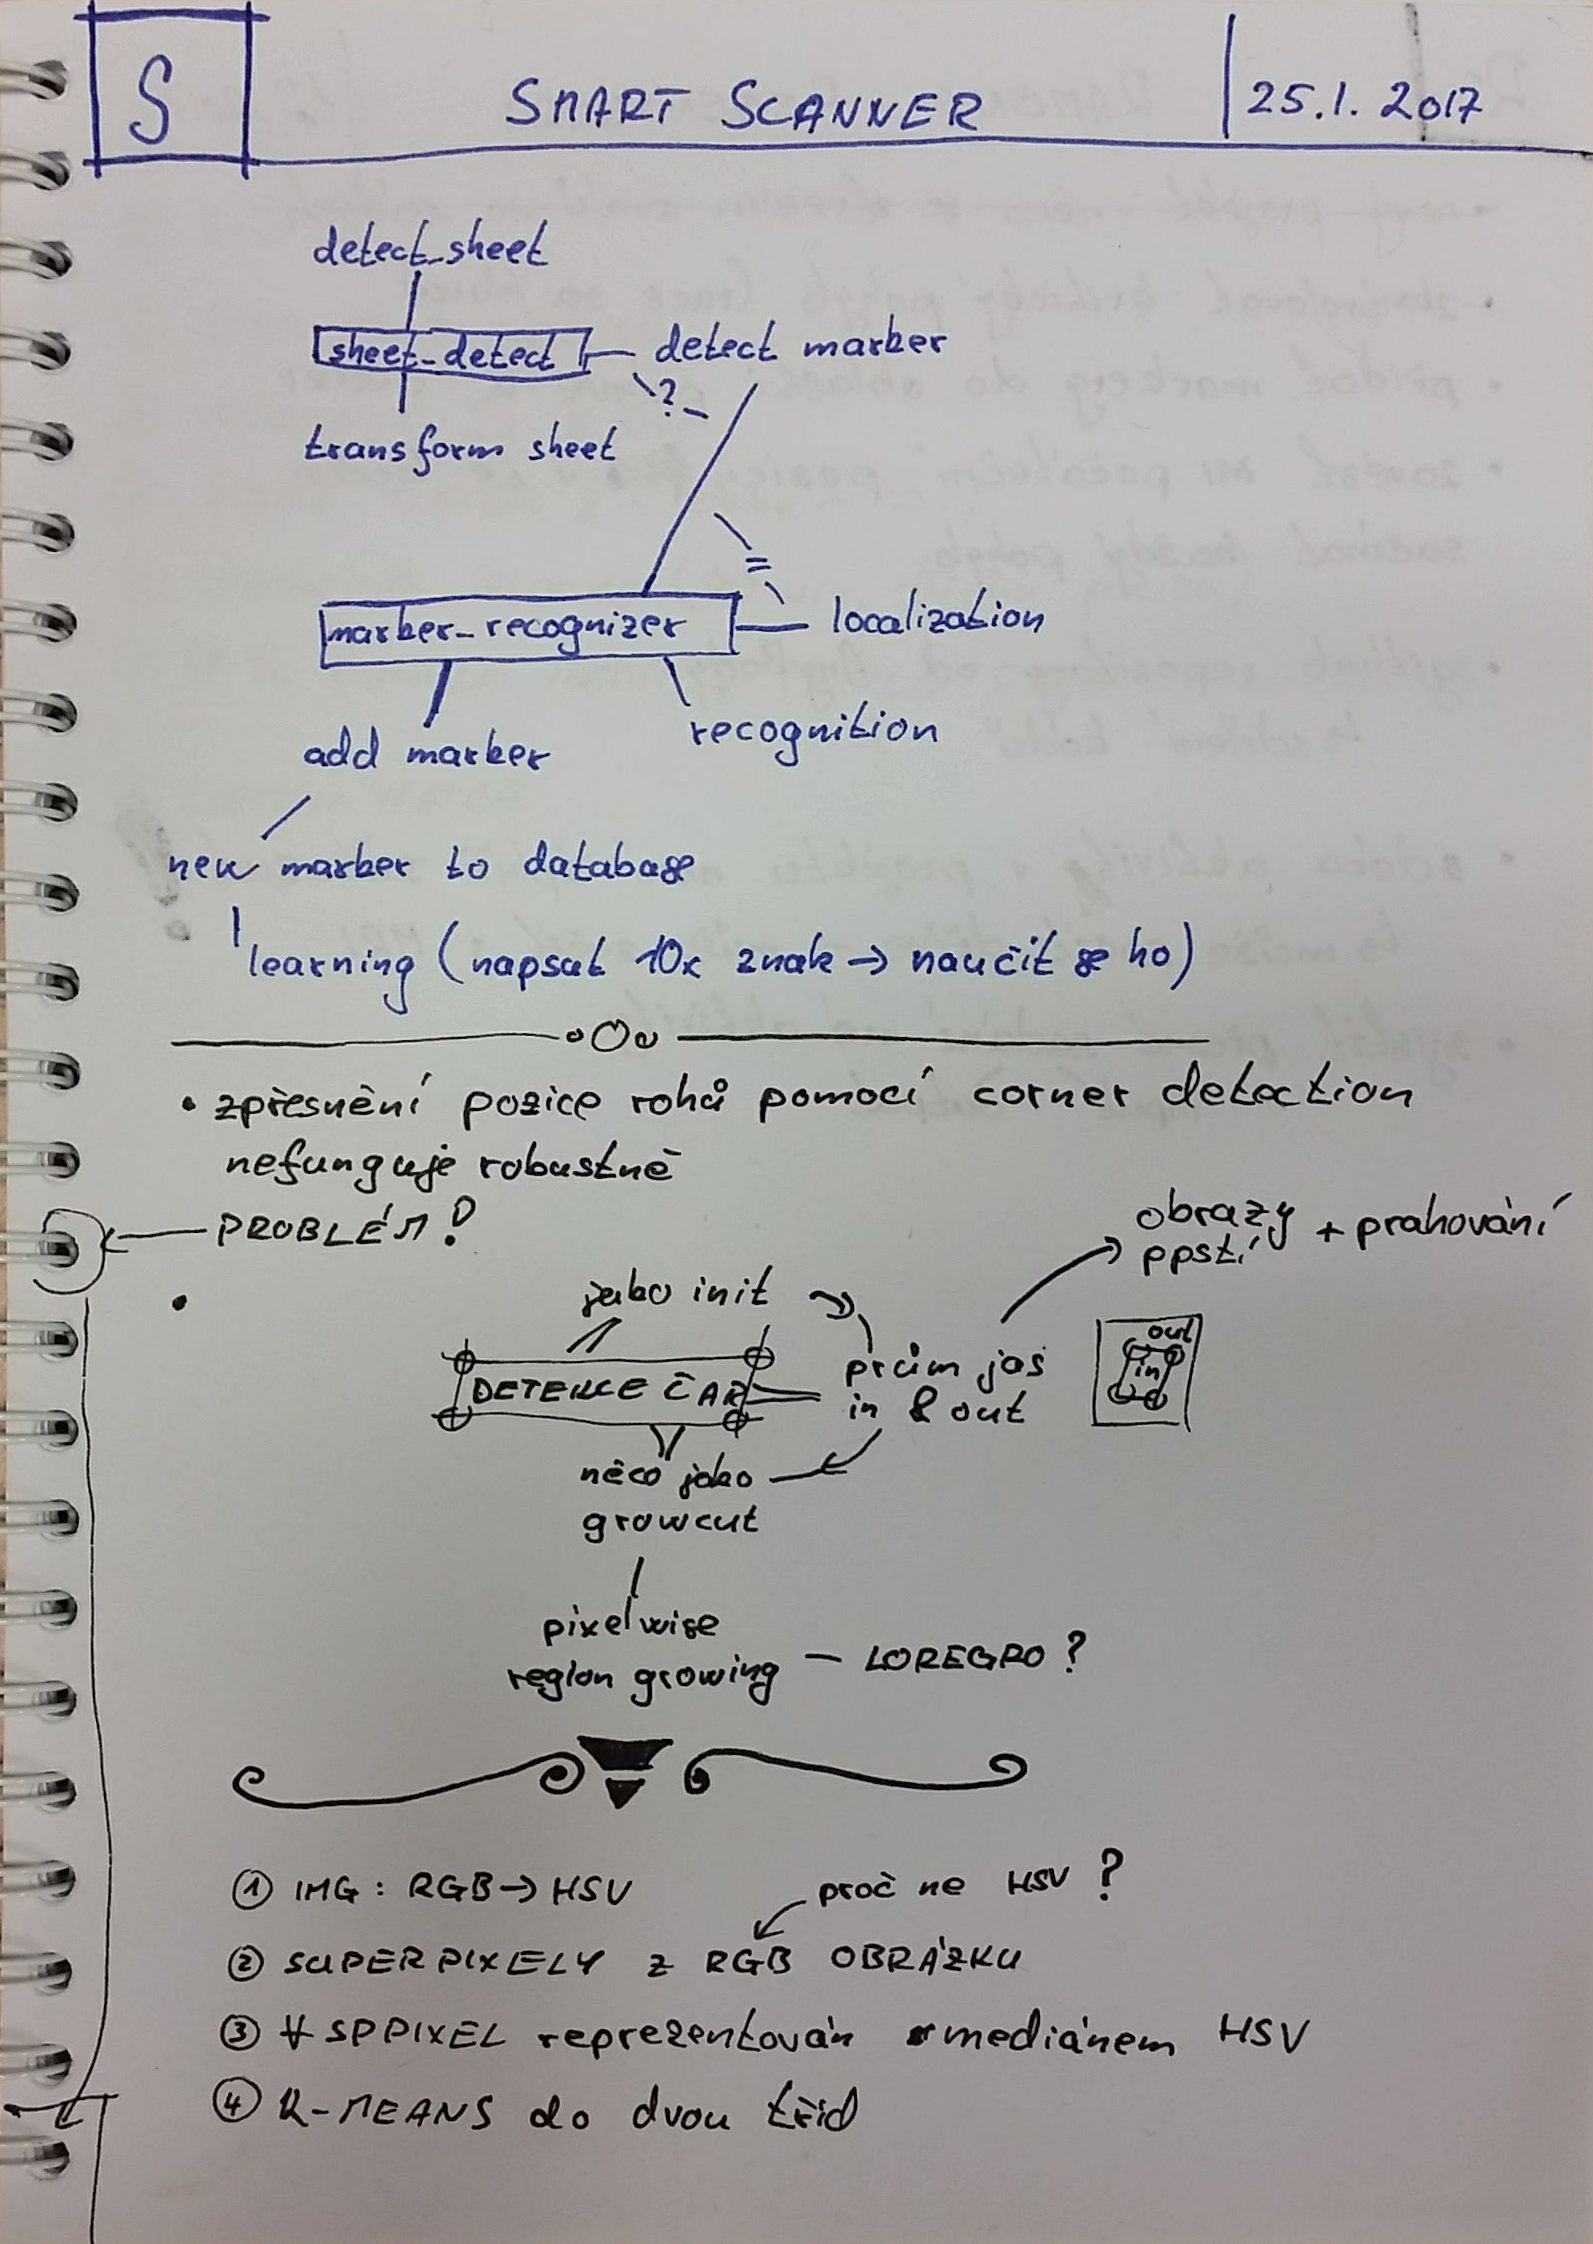 S
SMART SCANNER
25.1. 2017
detect_sheet
sheet_detect
detect marker
?
transform sheet
=
marker_recognizer
localization
add marker
recognition
new marker to database
learning (napsat 10x znak → naučit se ho)
• zpřesnění pozice rohů pomocí corner detection
nefunguje robustně
PROBLÉM!
obrazy + prahování
ppstí
•
jako init
DETEKCE ČAR
prům jas
in & out
out
in
něco jako
growcut
pixelwise
region growing — LOREGRO?
① IMG: RGB→HSV
proč ne HSV?
② SUPERPIXELY z RGB OBRÁZKU
③ ∀ SPPIXEL reprezentován mediánem HSV
④ K-MEANS do dvou tříd